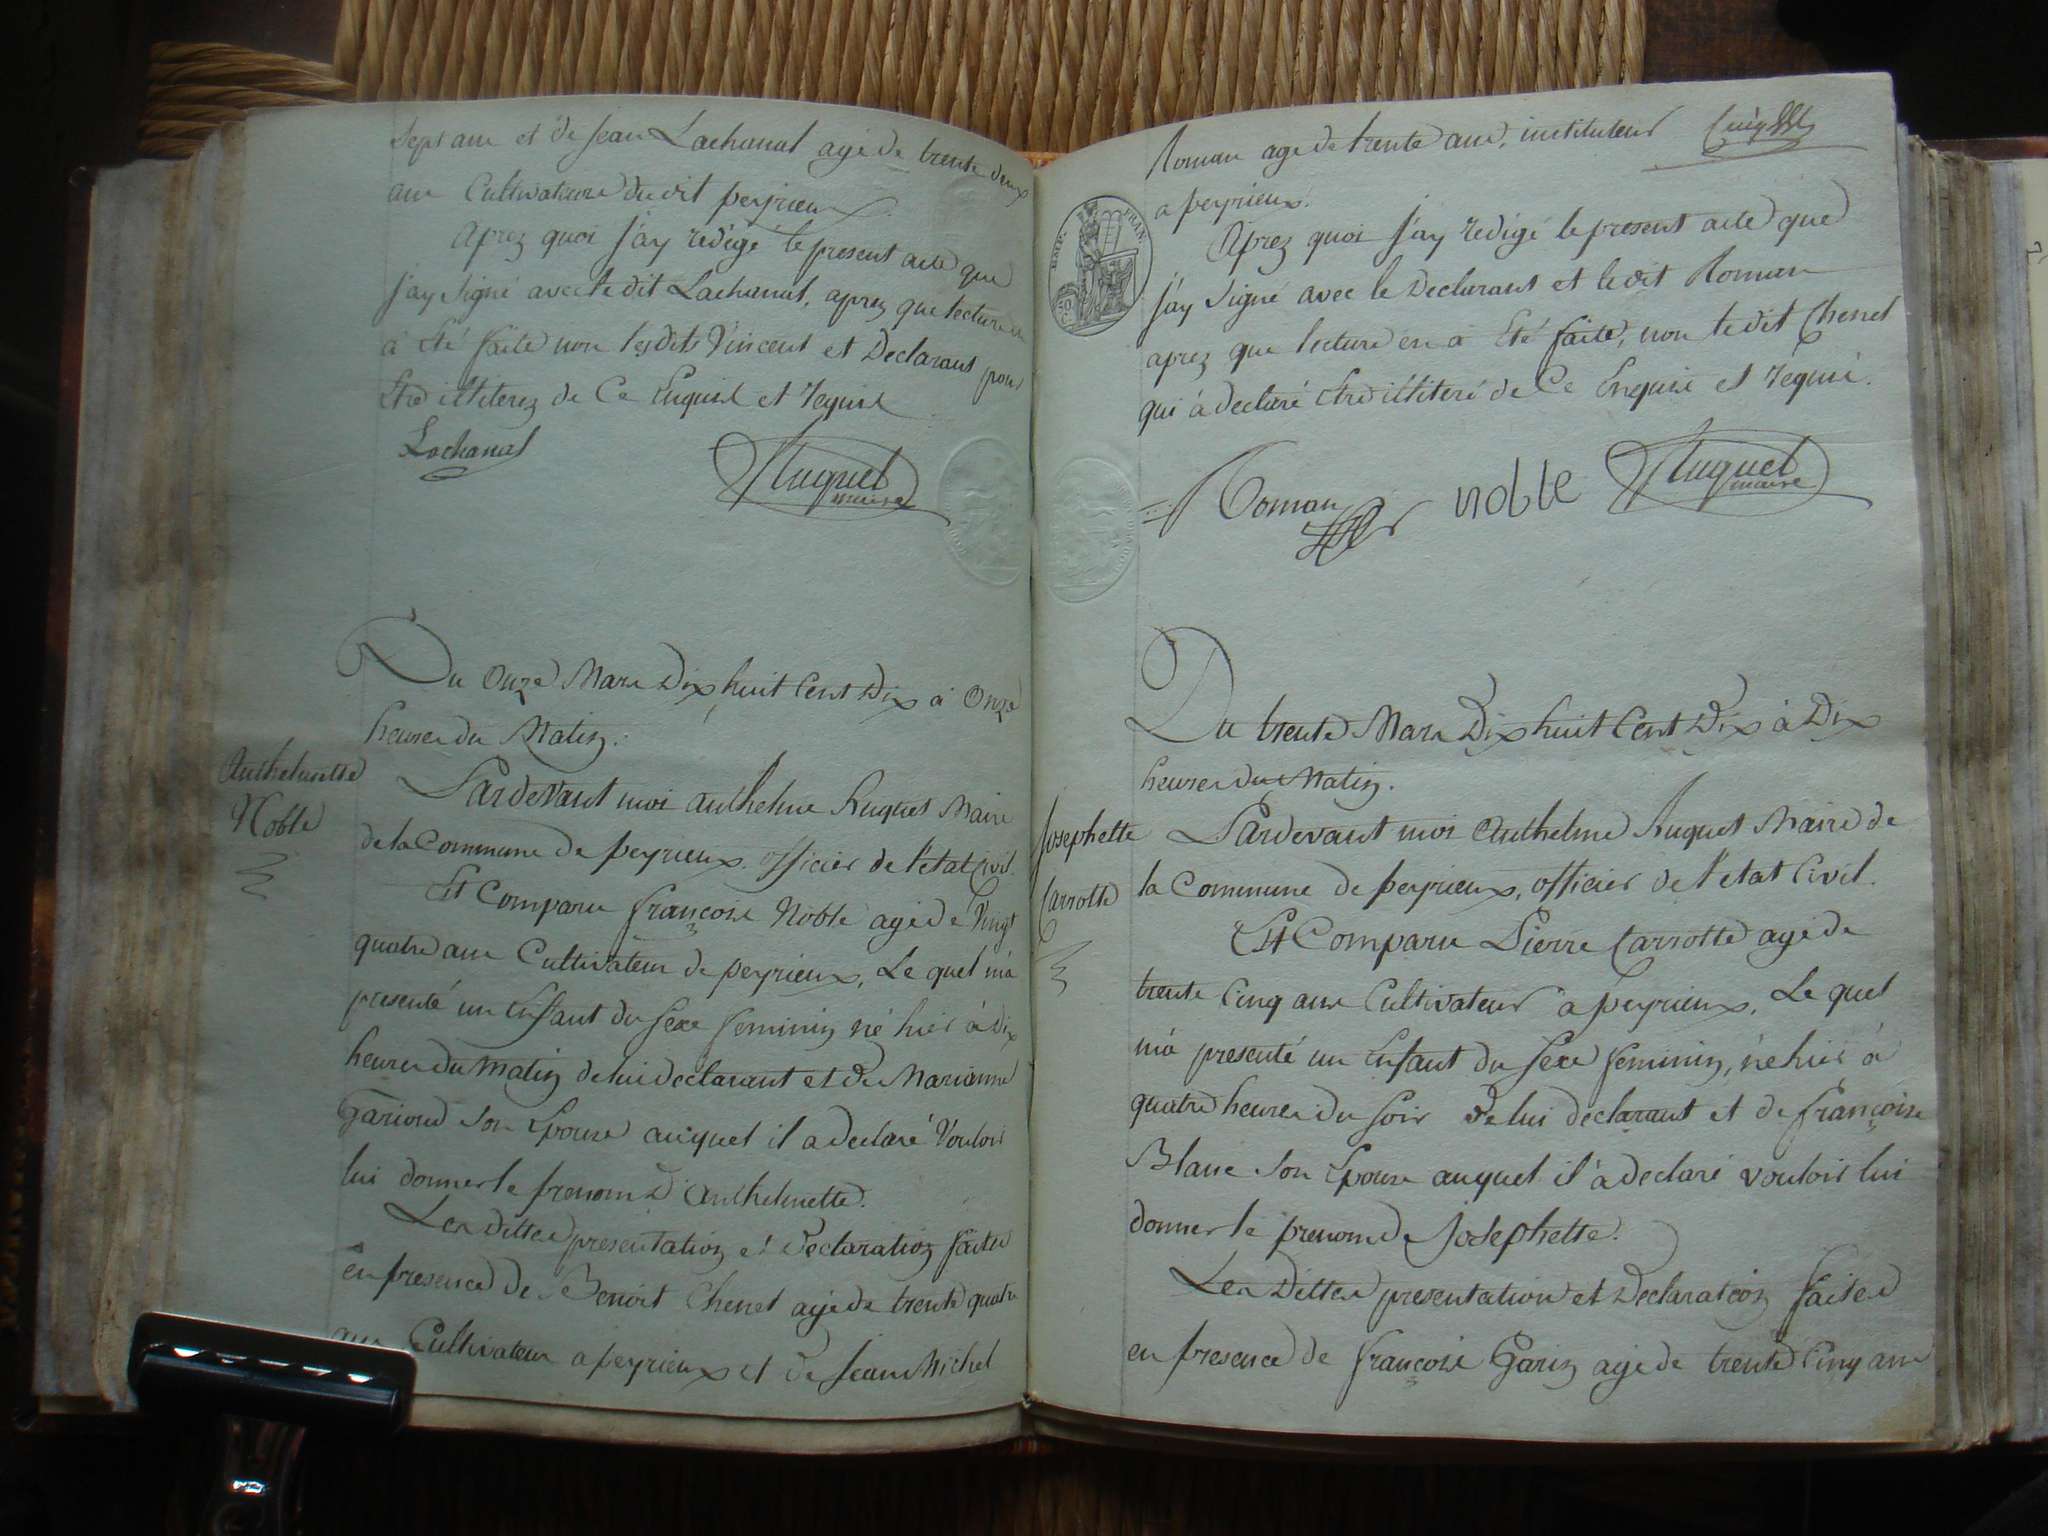 Sept ans et de Jean Lachanal agé de trente deux
ans Cultivateurs du dit peyrieux.
Aprez quoi J'ay redigé le present acte que
J'ay Signé avec le dit Lachanal, aprez que lecture en
à Eté faite non lesdits Vincent et Declarant pour
Etre illiterez de Ce Enquis et requis
Lachanal
Huguet
maire
Du Onze Mars Dix huit Cent Dix à Onze
heures du Matin.
Anthelmette
Noble
Pardevant moi anthelme huguet Maire
de la Commune de peyrieux. officier de l'état Civil.
Est Comparu françois Noble agé de Vingt
quatre ans Cultivateur de peyrieux, Le quel m'a
presenté un Enfant du Sexe feminin né hier à Dix
heures du Matin de lui declarant et de Marianne
Gariond Son Epouse auquel il a declaré Vouloir
lui donner le prenom D'anthelmette.
Les Dittes presentation et Declaration faites
en presence de Benoit Chenet agé de trente quatre
ans Cultivateur a peyrieux et de Jean Michel
Roman agé de trente ans, instituteur
a peyrieux.
REP. FRAN.
50
Aprez quoi J'ay redigé le present acte que
J'ay Signé avec le Declarant et le dit Roman
aprez que lecture en a Eté faite, non le dit Chenet
qui à declaré Etre illiteré de Ce Enquis et requis.
Roman noble Huguet
maire
Du trente Mars Dix huit Cent Dix à Dix
heures du Matin.
Josephette
Carrotte
Pardevant moi Anthelme Huguet Maire de
la Commune de peyrieux, officier de l'etat Civil.
Est Comparu Pierre Carrotte agé de
trente Cinq ans Cultivateur a peyrieux, Le quel
m'à presenté un Enfant du Sexe feminin, né hier à
quatre heures du Soir de lui declarant et de françoise
Blanc Son Epouse auquel il à declaré vouloir lui
donner le prenom de Josephette.
Les Dittes presentation et Declaration faites
en presence de françois Garin agé de trente Cinq ans